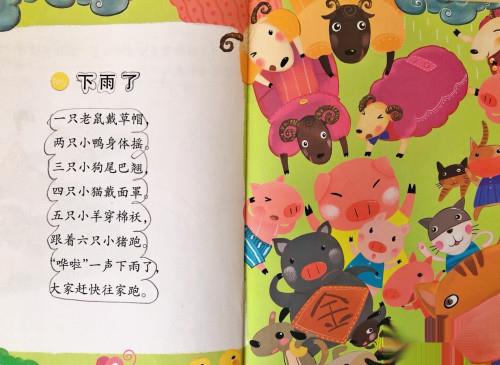 下雨了
一只老鼠戴草帽，
两只小鸭身体摇。
三只小狗尾巴翘，
四只小猫戴面罩。
五只小羊穿棉袄，
跟着六只小猪跑。
“哗啦”一声下雨了，
大家赶快往家跑。
金